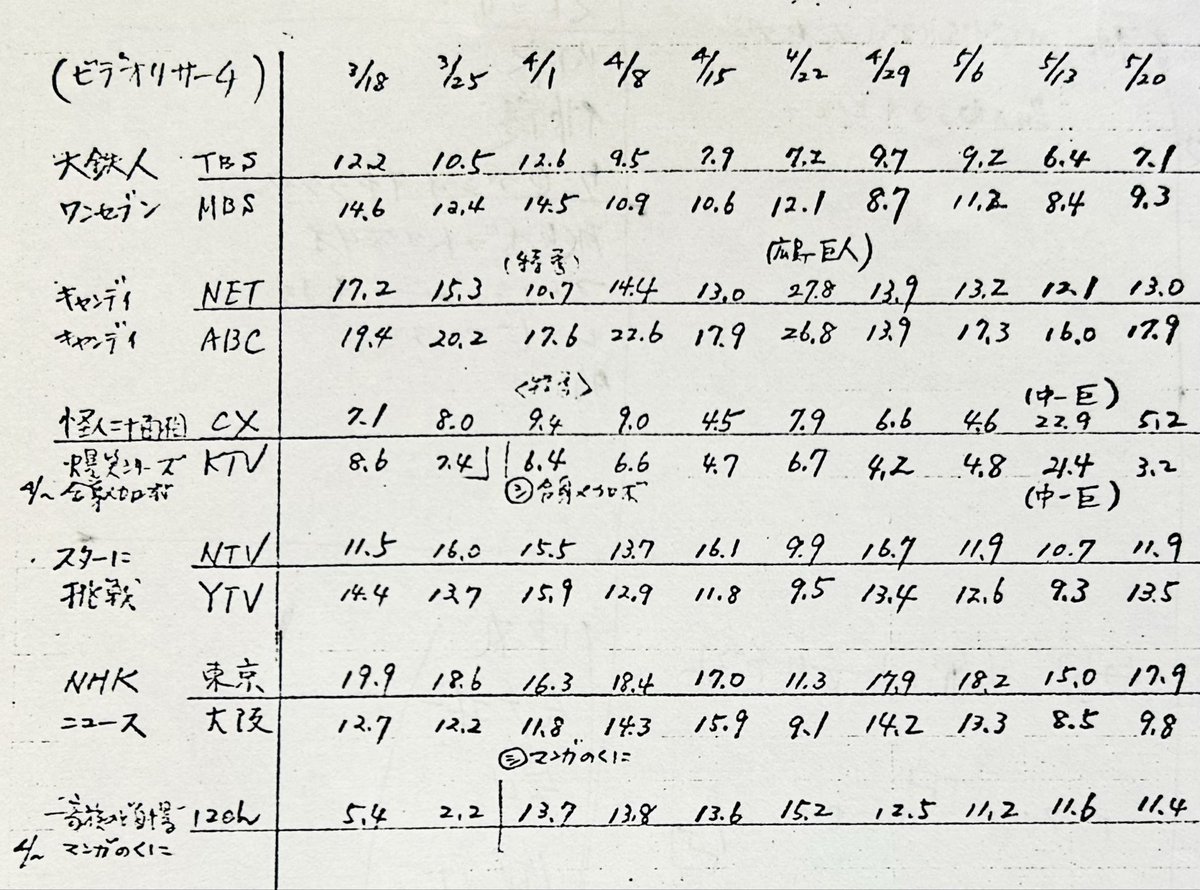 (ビデオリサーチ) 3/18 3/25 4/1 4/8 4/15 4/22 4/29 5/6 5/13 5/20
大鉄人 TBS 12.2 10.5 12.6 9.5 7.9 7.2 9.7 9.2 6.4 7.1
ワンセブン MBS 14.6 12.4 14.5 10.9 10.6 12.1 8.7 11.2 8.4 9.3
(特番) (広島-巨人)
キャンディ NET 17.2 15.3 10.7 14.4 13.0 27.8 13.9 13.2 12.1 13.0
キャンディ ABC 19.4 20.2 17.6 22.6 17.9 26.8 13.9 17.3 16.0 17.9
<特番> (中-巨)
怪人二十面相 CX 7.1 8.0 9.4 9.0 4.5 7.9 6.6 4.6 22.9 5.2
爆笑シリーズ KTV 8.6 7.4 6.4 6.6 4.7 6.7 4.2 4.8 21.4 3.2
4/1~ 合身メカロボ 合身メカロボ (中-巨)
スターに NTV 11.5 16.0 15.5 13.7 16.1 9.9 16.7 11.9 10.7 11.9
挑戦 YTV 14.4 13.7 15.9 12.9 11.8 9.5 13.4 12.6 9.3 13.5
NHK 東京 19.9 18.6 16.3 18.4 17.0 11.3 17.9 18.2 15.0 17.9
ニュース 大阪 12.7 12.2 11.8 14.3 15.9 9.1 14.2 13.3 8.5 9.8
マンガのくに
12ch 5.4 2.2 13.7 13.8 13.6 15.2 12.5 11.2 11.6 11.4
4/1~ マンガのくに